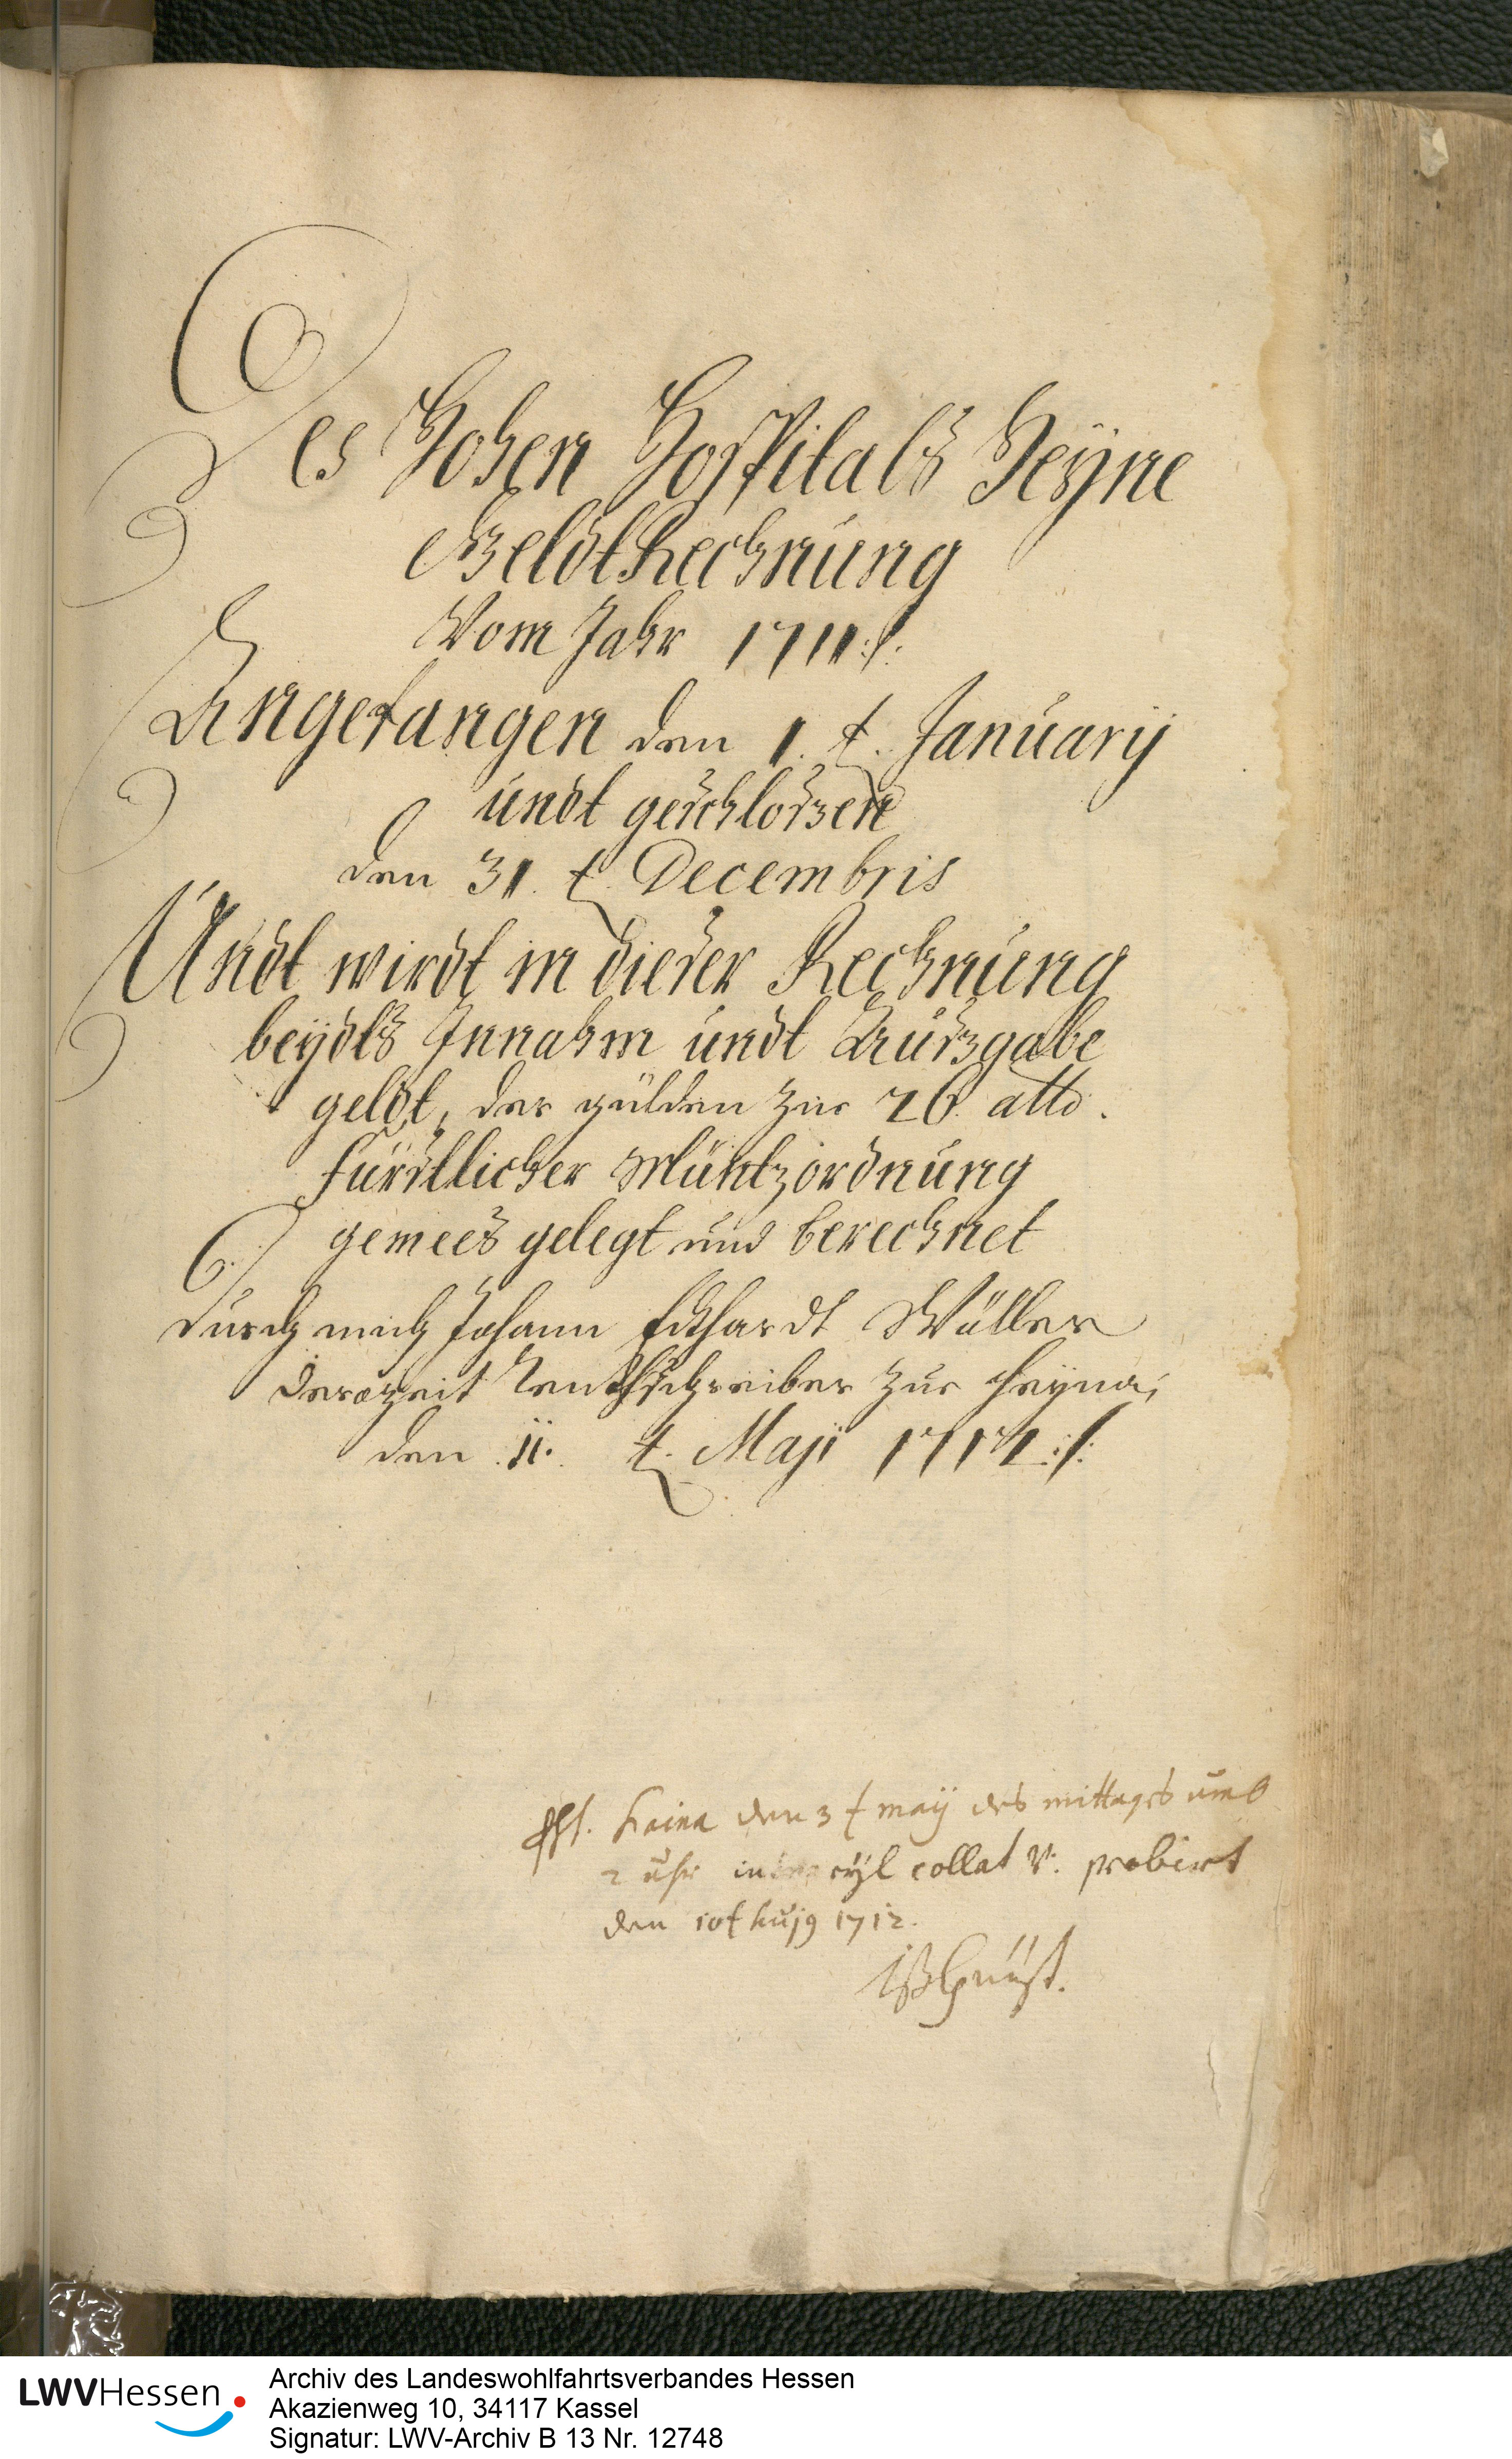 Des Hohen Hospitals Heÿne
GeldtRechnung
Vom Jahr 1711 :/:
Angefangen den 1.t. Januarÿ
undt geschloßen
den 31.t. Decembris
Undt wirdt in dieser Rechnung
beÿdts Innahm undt Außgabe
geldt, der gülden zur 26. alb.
fürstlicher Müntzordnung
gemees gelegt und berechnet
durch mich Johann Eckhardt Müller
derozeit Renthschreiber zur Heÿna,
den 11. t. Maji 1712 :/:
Haina den 3 t maÿ des mittages umb
2 uhr eÿl collat v. probirt
den 10t hujg 1712.
LWVHessen
Archiv des Landeswohlfahrtsverbandes Hessen
Akazienweg 10, 34117 Kassel
Signatur: LWV-Archiv B 13 Nr. 12748